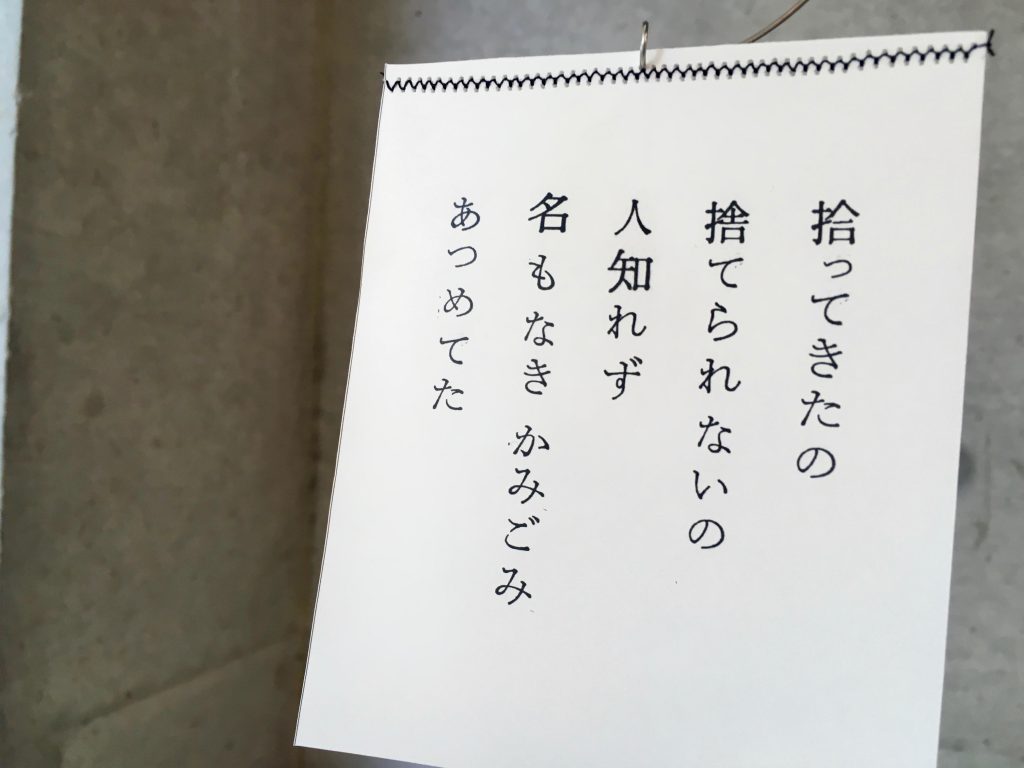 拾ってきたの
捨てられないの
人知れず
名もなき かみごみ
あつめてた